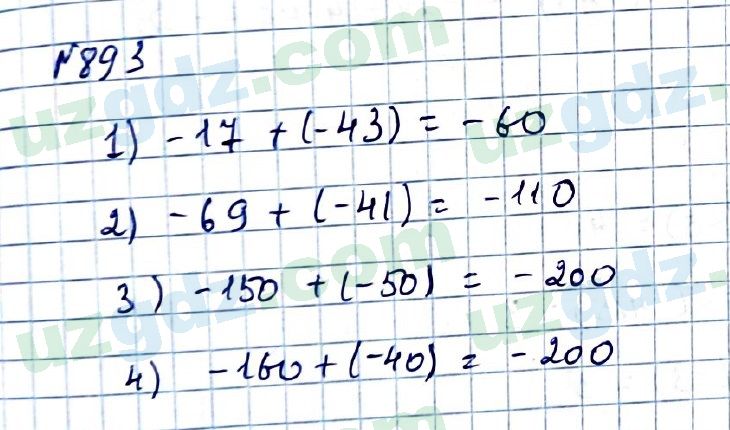 №893
1) -17 + (-43) = -60
2) -69 + (-41) = -110
3) -150 + (-50) = -200
4) -160 + (-40) = -200
uzgdz.com
uzgdz.com
uzgdz.com
uzgdz.com